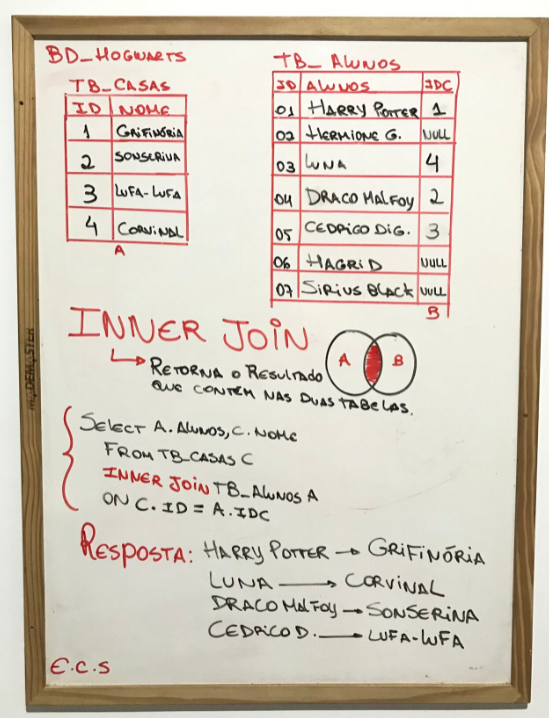 BD_HOGWARTS
TB_CASAS
ID NOME
1 GRIFINÓRIA
2 SONSERINA
3 LUFA-LUFA
4 CORVINAL
A
TB_ALUNOS
ID ALUNOS IDC
01 HARRY POTTER 1
02 HERMIONE G. NULL
03 LUNA 4
04 DRACO MALFOY 2
05 CEDRICO DIG. 3
06 HAGRID NULL
07 SIRIUS BLACK NULL
B
INNER JOIN
A B
RETORNA O RESULTADO
QUE CONTÉM NAS DUAS TABELAS.
SELECT A.ALUNOS, C.NOME
FROM TB_CASAS C
INNER JOIN TB_ALUNOS A
ON C.ID = A.IDC
RESPOSTA: HARRY POTTER → GRIFINÓRIA
LUNA → CORVINAL
DRACO MALFOY → SONSERINA
CEDRICO D. → LUFA-LUFA
E.C.S